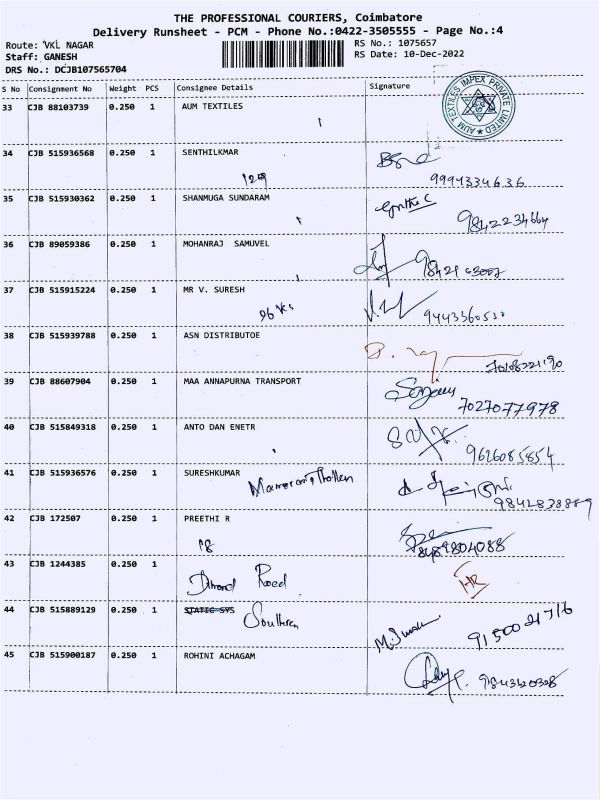 THE PROFESSIONAL COURIERS, Coimbatore
Delivery Runsheet - PCM - Phone No.:0422-3505555 - Page No.:4
Route: VKL NAGAR
RS No.: 1075657
Staff: GANESH
RS Date: 10-Dec-2022
DRS No.: DCJB107565704
S No Consignment No Weight PCS Consignee Details Signature
AUM TEXTILES IMPEX PRIVATE LIMITED
33 CJB 88103739 0.250 1 AUM TEXTILES
34 CJB 515936568 0.250 1 SENTHILKMAR
129 9994334636
35 CJB 515930362 0.250 1 SHANMUGA SUNDARAM
9842234664
36 CJB 89059386 0.250 1 MOHANRAJ SAMUVEL
37 CJB 515915224 0.250 1 MR V. SURESH
38 CJB 515939788 0.250 1 ASN DISTRIBUTOE
39 CJB 88607904 0.250 1 MAA ANNAPURNA TRANSPORT
7027077978
40 CJB 515849318 0.250 1 ANTO DAN ENETR
9626085854
41 CJB 515936576 0.250 1 SURESHKUMAR
9842838889
42 CJB 172507 0.250 1 PREETHI R
18 8489804088
43 CJB 1244385 0.250 1
Road
44 CJB 515889129 0.250 1 STATIC SYS Southern
9150021716
45 CJB 515900187 0.250 1 ROHINI ACHAGAM
9843320328